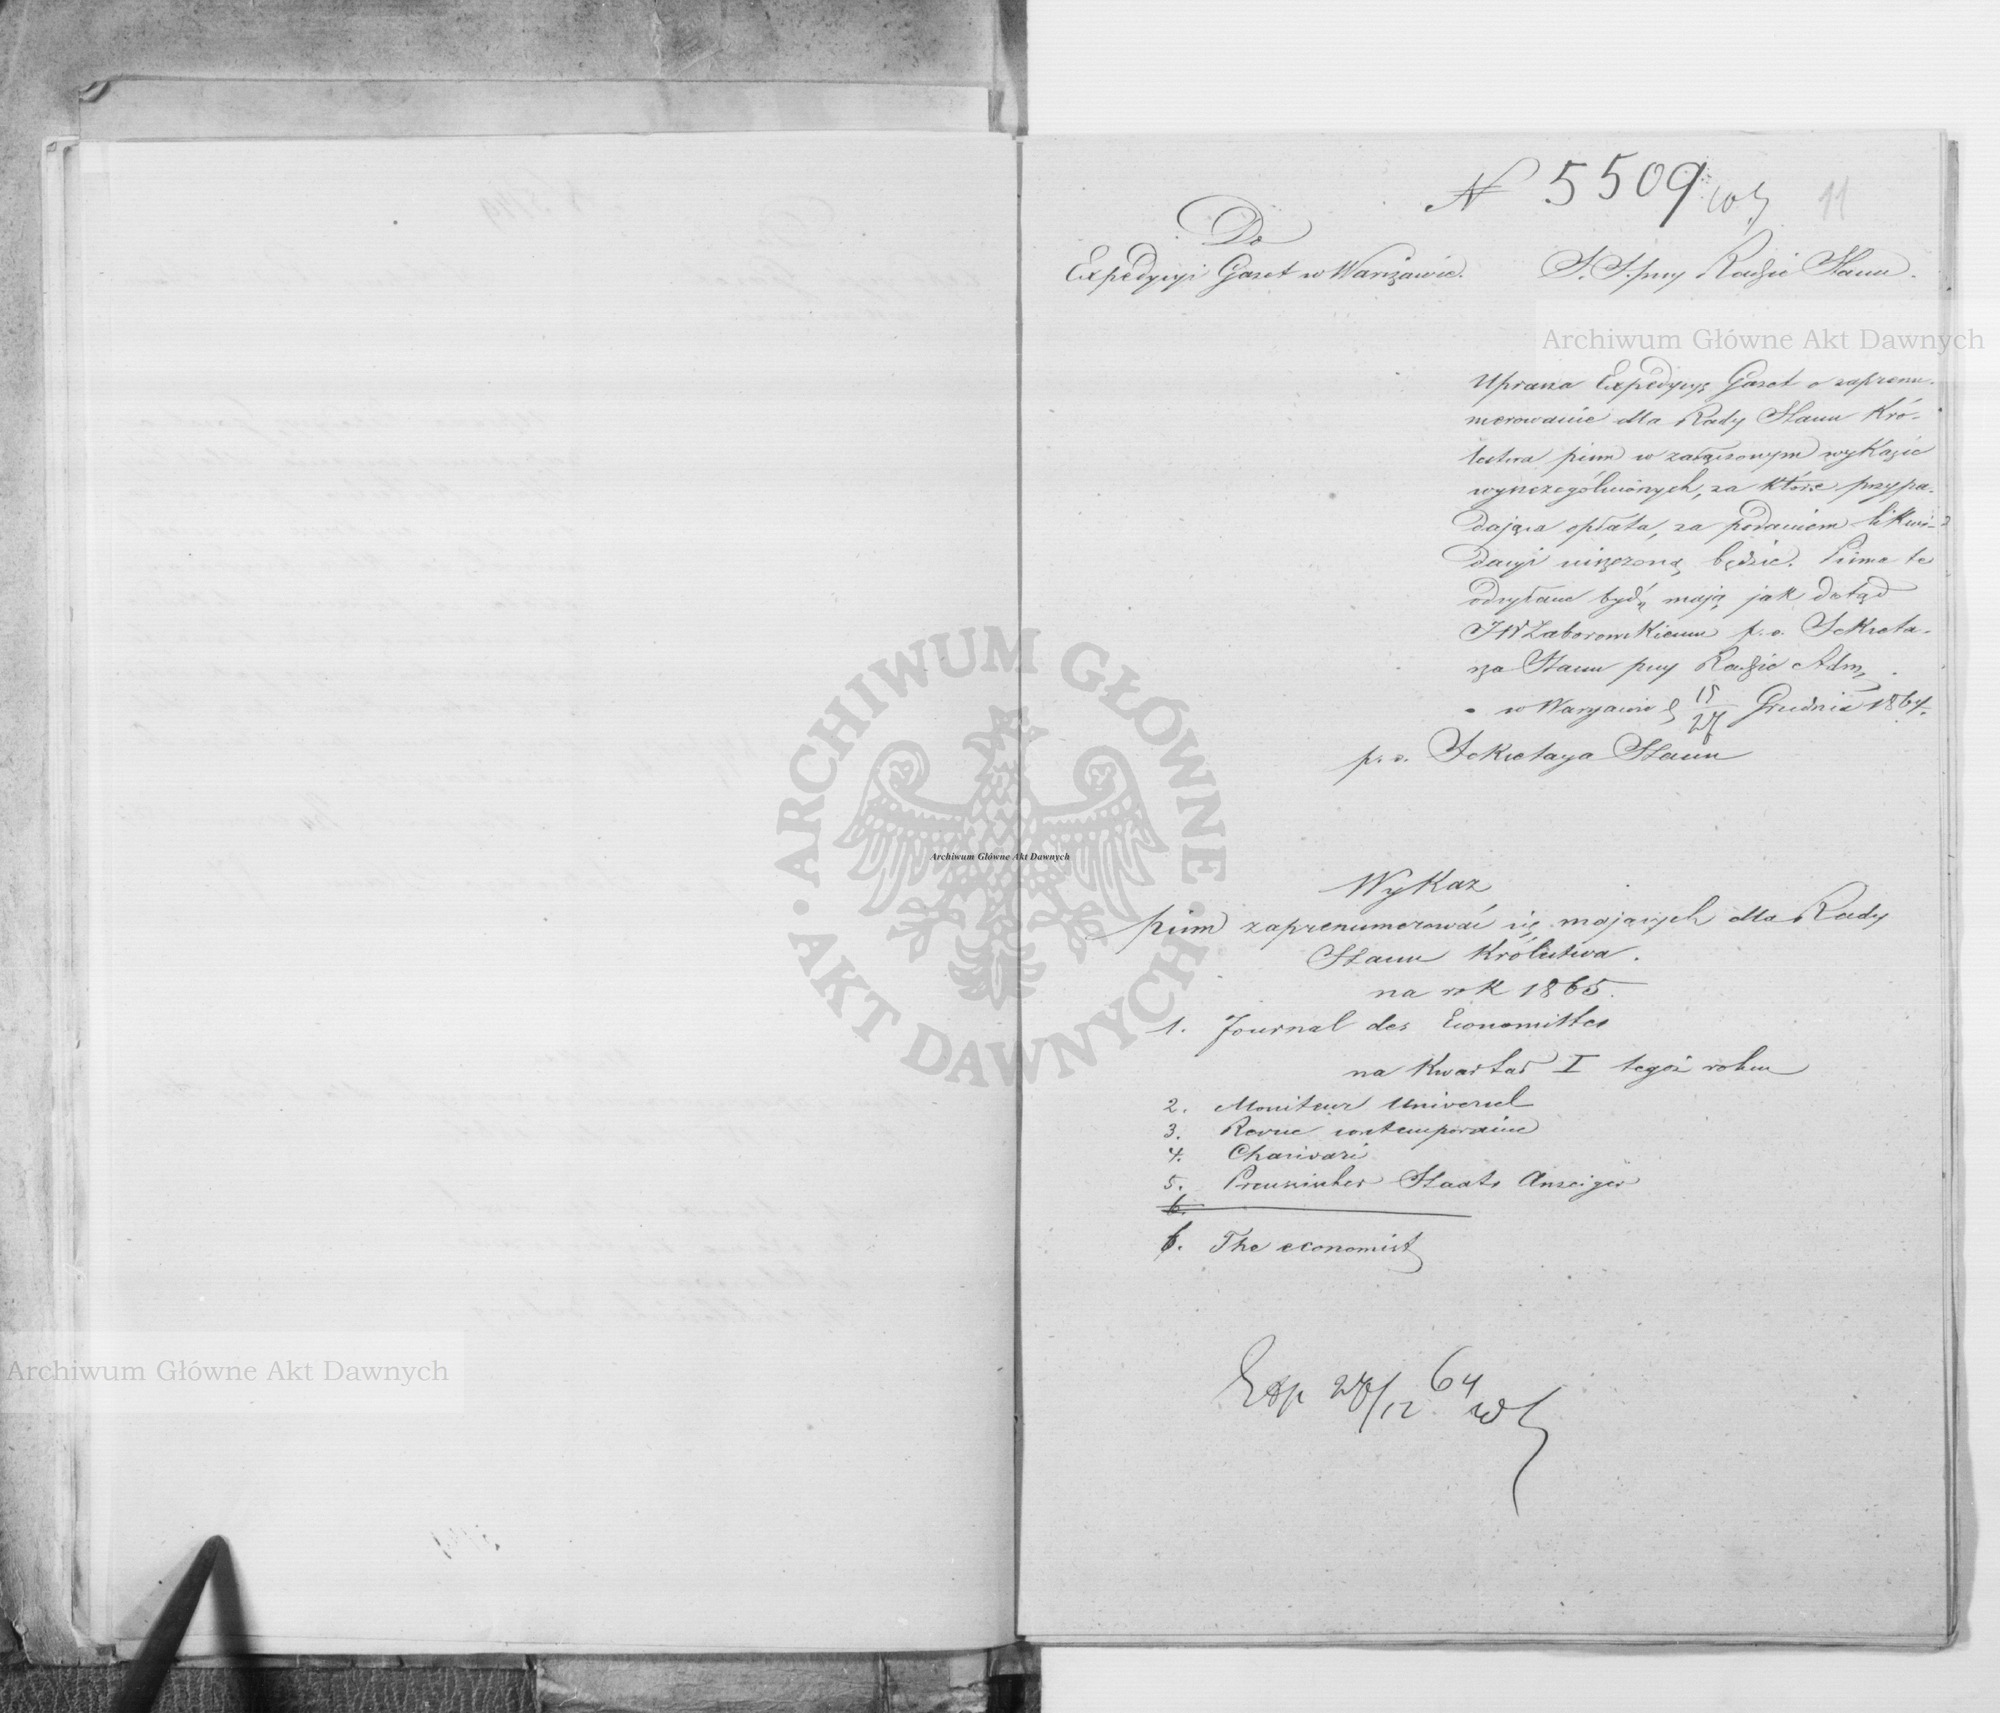 N 5509
11
Do
Expedycyi Gazet w Warszawie.
S. S. przy Radzie Stanu.
Uprasza Expedycyę Gazet o zaprenu-
merowanie dla Rady Stanu Kró-
lestwa pism w załączonym wykazie
wyszczególnionych, za które przypa-
dająca opłata, za podaniem likwi-
dacyi uiszczoną będzie. Pisma te
odsyłane być mają jak dotąd
JW Zaborowskiemu p. o. Sekreta-
rza Stanu przy Radzie Adm.
w Warszawie d 15/27 Grudnia 1864.
p. o. Sekretarza Stanu
Wykaz
pism zaprenumerować się mających dla Rady
Stanu Królestwa.
na rok 1865.
1. Journal des Economistes
na Kwartał I tegoż roku
2. Moniteur Universel
3. Revue contemporaine
4. Charivari
5. Preussischer Staats Anzeiger
6.
6. The economist
Exp 28/12 64
Archiwum Główne Akt Dawnych
Archiwum Główne Akt Dawnych
Archiwum Główne Akt Dawnych
ARCHIWUM GŁÓWNE
AKT DAWNYCH